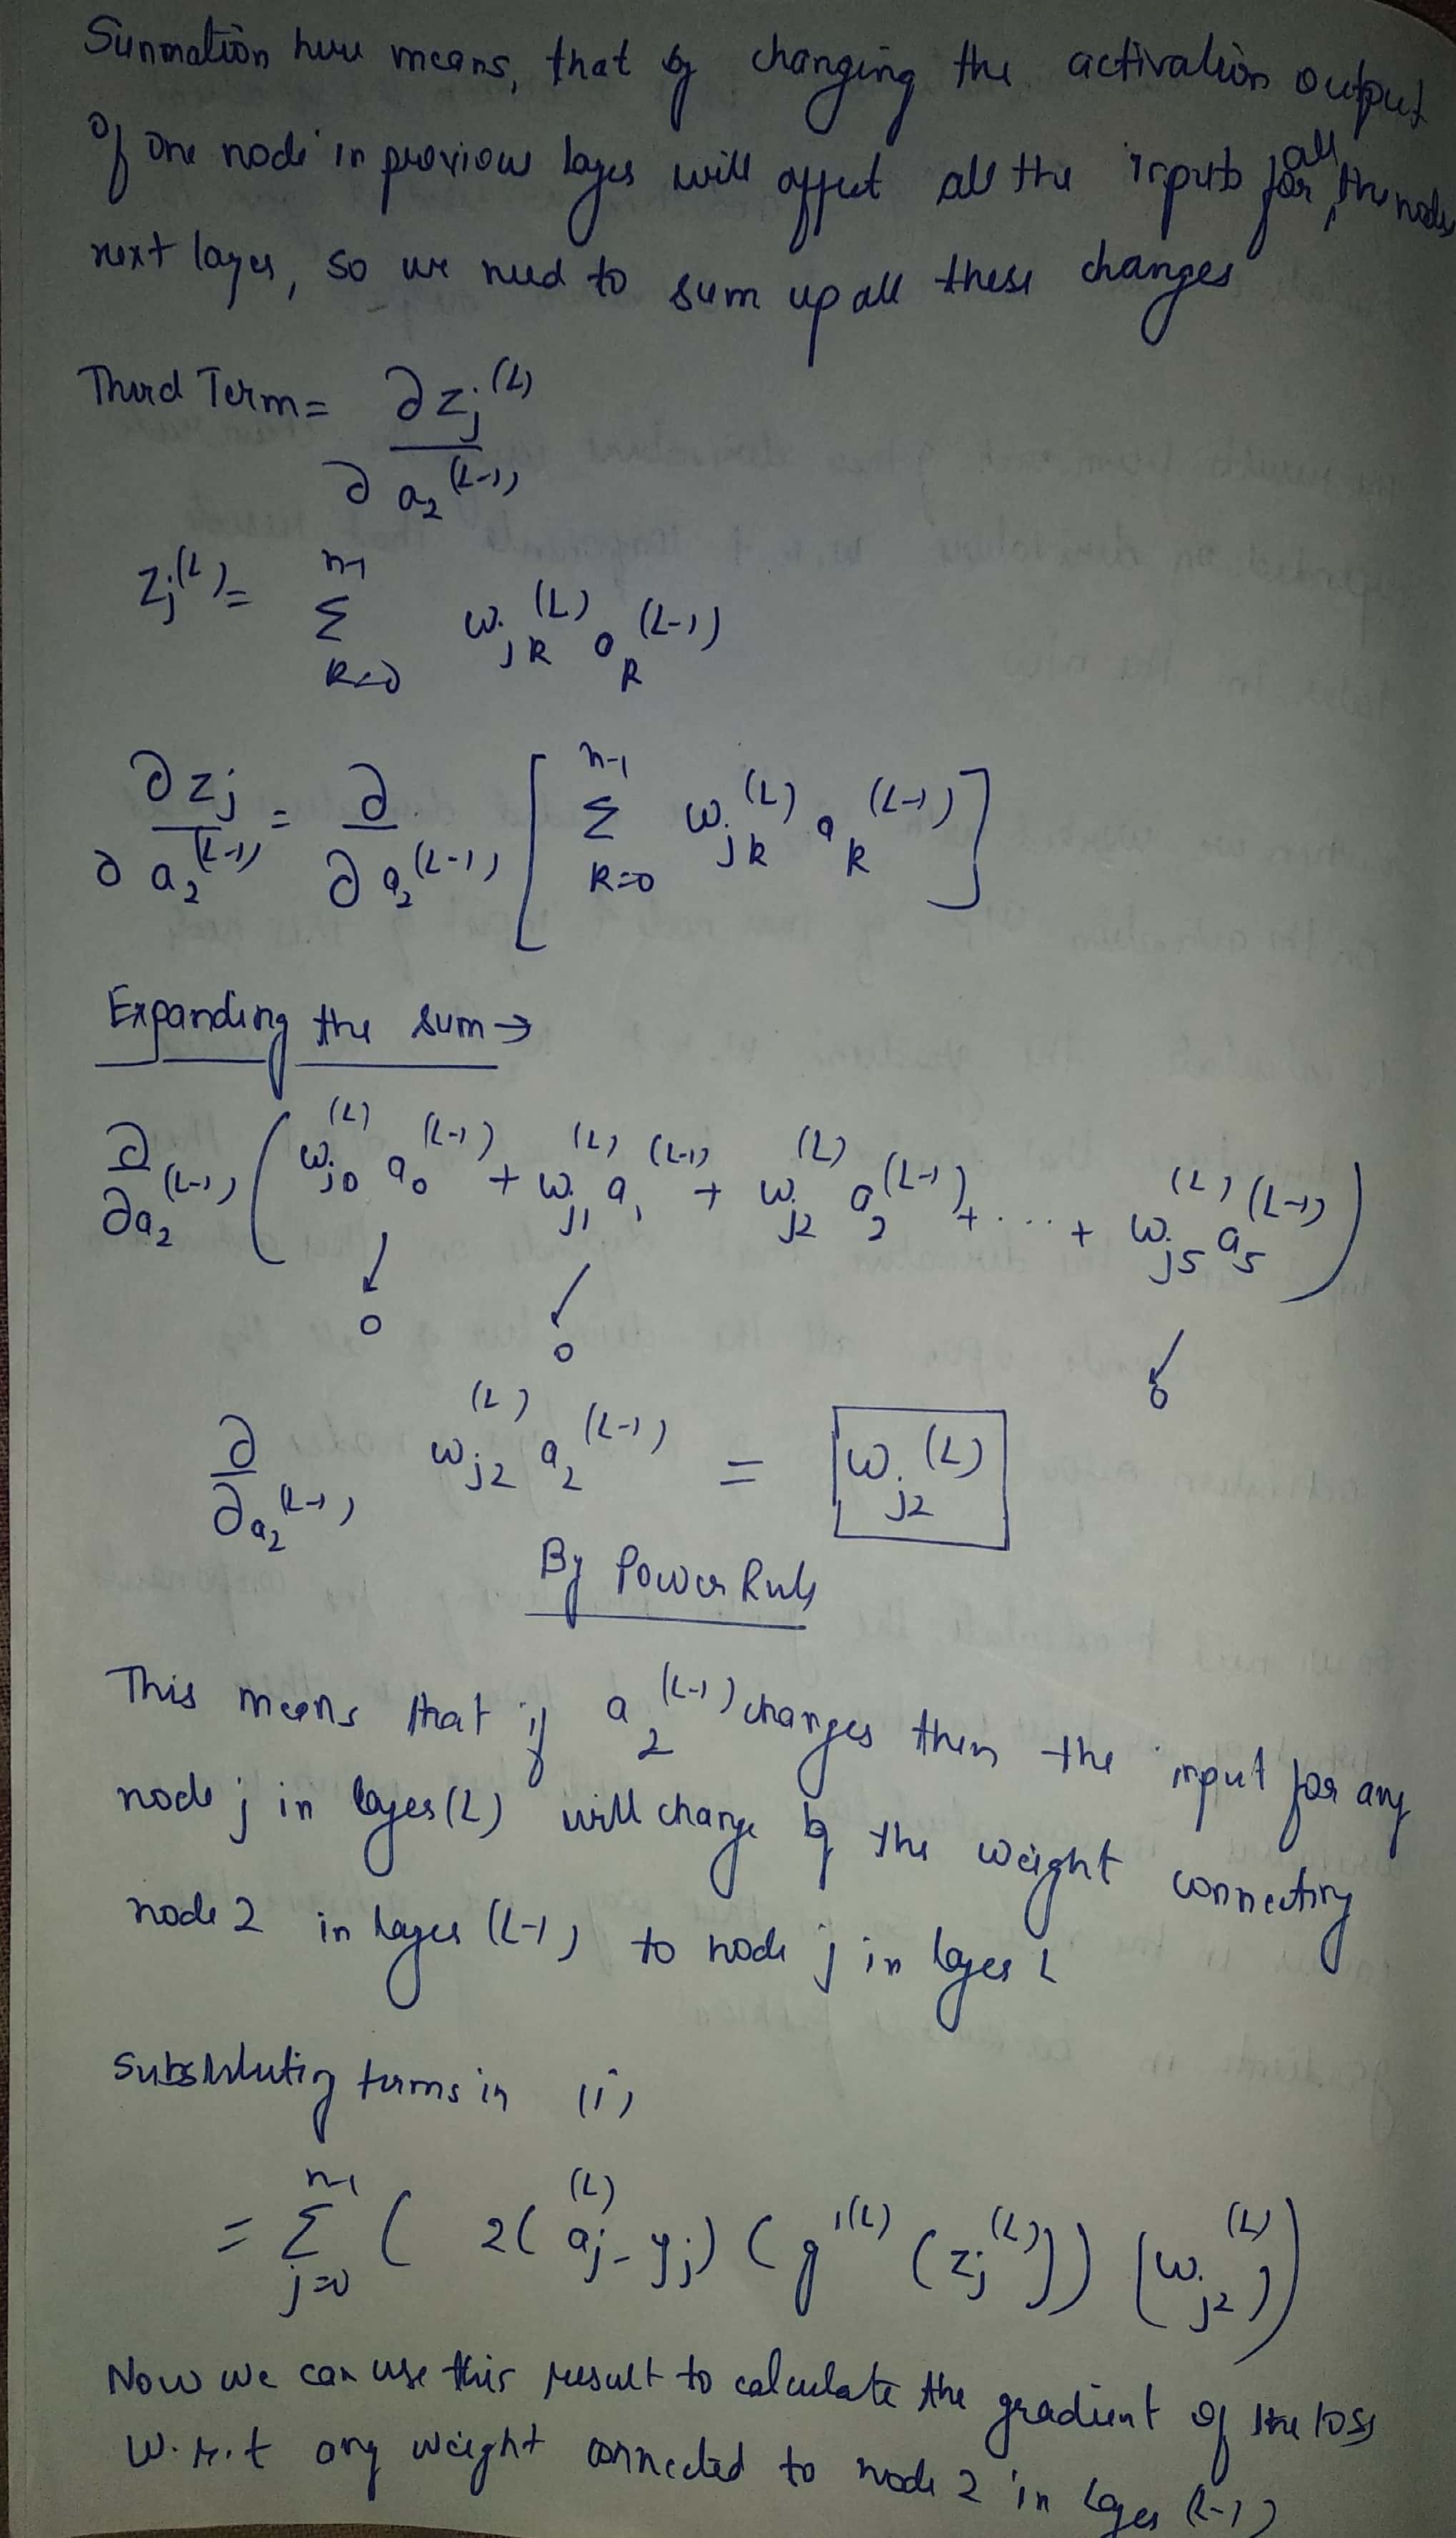 Summation here means, that by changing the activation output
of one node in previous layer will affect all the inputs for all the nodes
next layer, so we need to sum up all these changes
Third Term = ∂zj^(L) / ∂a2^(L-1)
zj^(L) = Σ_{k=0}^{n-1} wjk^(L) ak^(L-1)
∂zj / ∂a2^(L-1) = ∂/∂a2^(L-1) [ Σ_{k=0}^{n-1} wjk^(L) ak^(L-1) ]
Expanding the sum →
∂/∂a2^(L-1) ( wj0^(L) a0^(L-1) + wj1^(L) a1^(L-1) + wj2^(L) a2^(L-1) + .... + wj5^(L) a5^(L-1) )
↓ 0 ↓ 0 ↓ 0
∂/∂a2^(L-1) wj2^(L) a2^(L-1) = wj2^(L)
By Power Rule
This means that if a2^(L-1) changes then the input for any
node j in layer (L) will change by the weight connecting
node 2 in layer (L-1) to node j in layer L
Substituting terms in (i)
= Σ_{j=0}^{n-1} ( 2(aj^(L) - yj) (g'^(L) (zj^(L))) (wj2^(L)) )
Now we can use this result to calculate the gradient of the loss
w.r.t any weight connected to node 2 in layer (L-1)